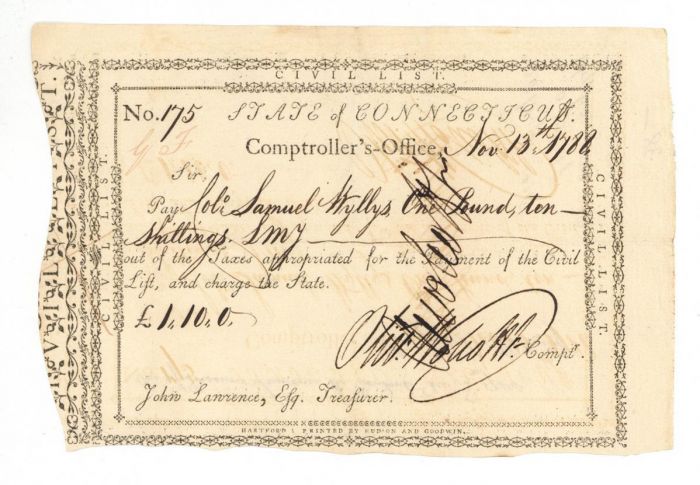 CIVIL LIST.
No. 175 STATE of CONNECTICUT.
Comptroller's-Office, Nov 13th 1788
Sir,
Pay Colo Samuel Wyllys, One Pound, ten
Shillings LMy
out of the Taxes appropriated for the Payment of the Civil
Liſt, and charge the State.
£ 1, 10, 0.
Compt.
John Lawrence, Eſq. Treaſurer.
HARTFORD: PRINTED BY HUDSON AND GOODWIN.
CIVIL LIST.
CIVIL LIST.